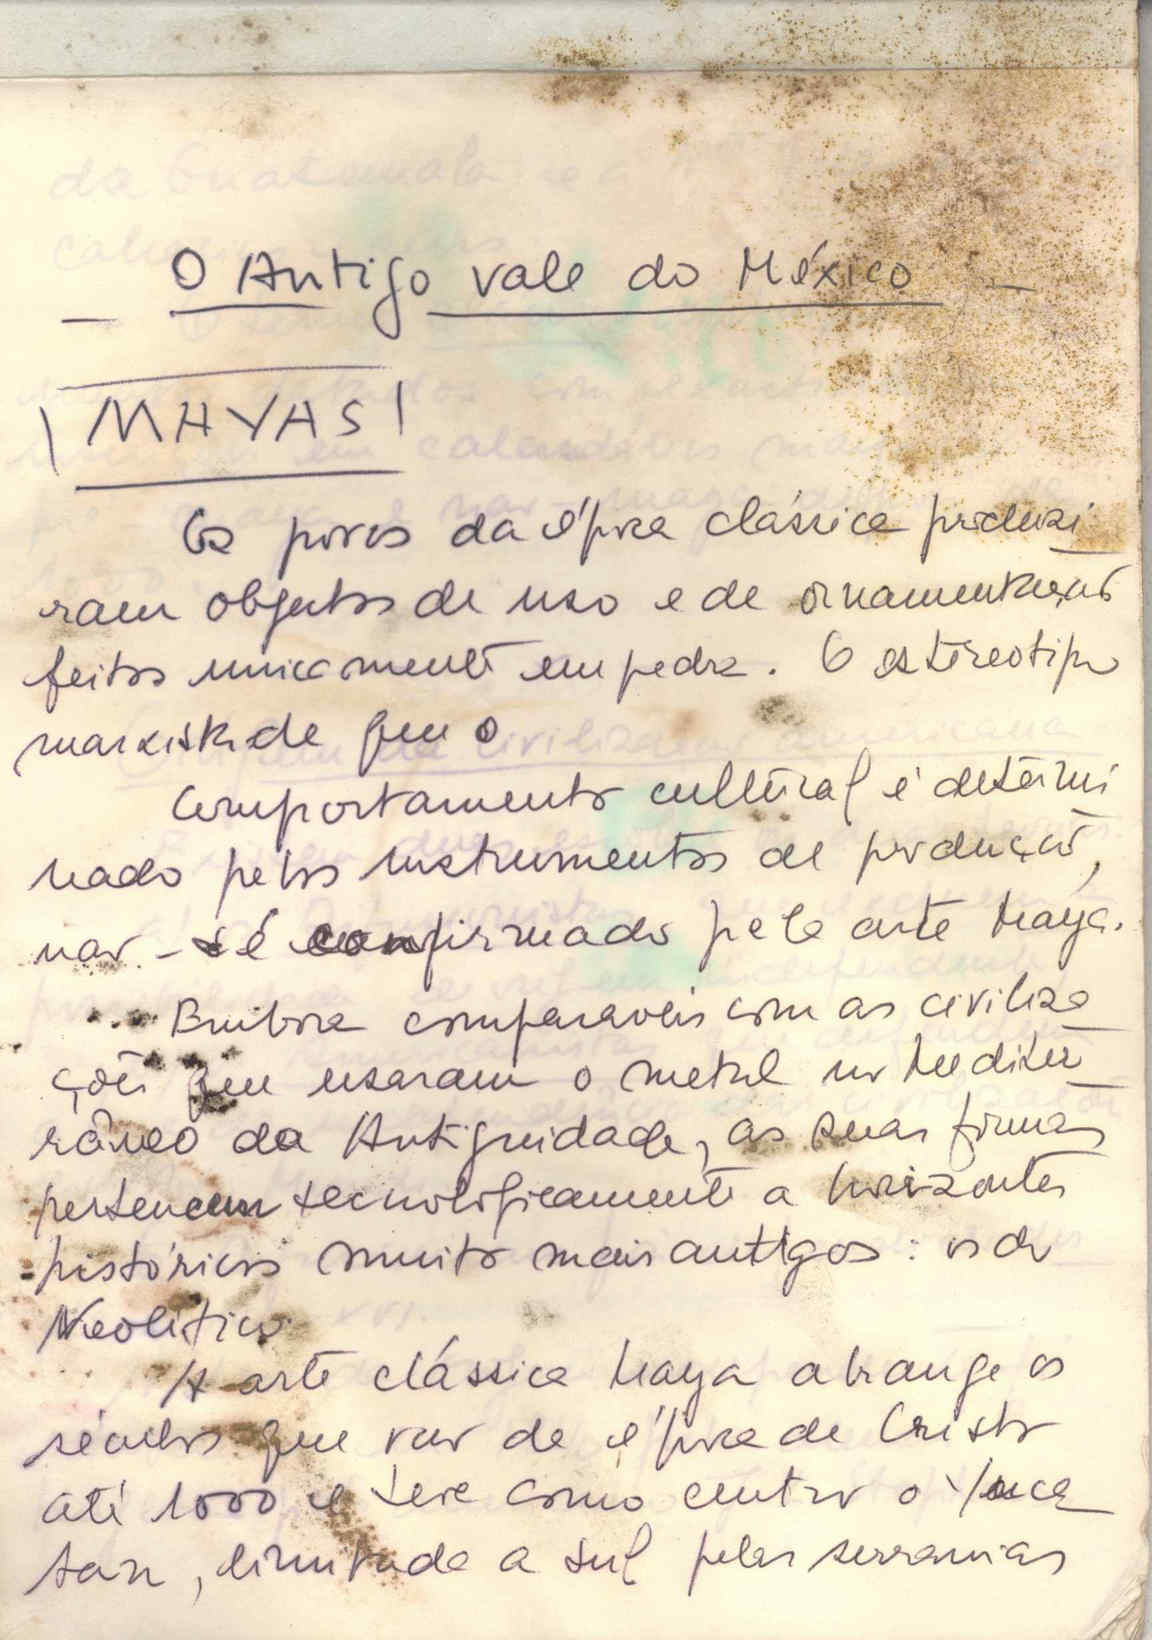 O Antigo vale do México
MAYAS
Os povos da época clássica produzi
ram objectos de uso e de ornamentação
feitos unicamente em pedra. O estereotipo
marxista de que o
Comportamento cultural é determi
nado pelos instrumentos de produção,
não - é confirmado pela arte Maya.
Embora comparaveis com as civiliza
ções que usaram o metal no Mediter
râneo da Antiguidade, as suas formas
pertencem tecnologicamente a horizontes
históricos muito mais antigos : os do
Neolítico
A arte clássica Maya abrange os
séculos que vão de época de Cristo
até 1000 e teve como centro o Yuca
tan, limitada a sul pelas serranias